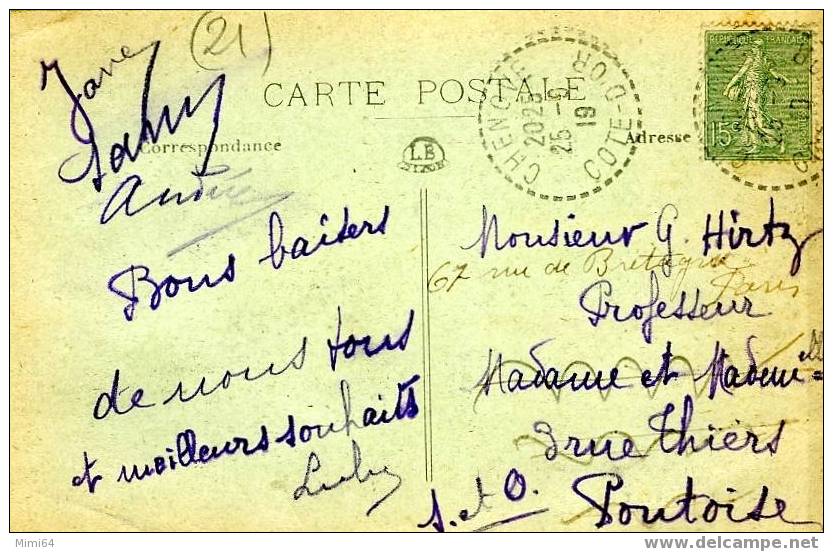 (21)
CARTE POSTALE
Correspondance
Adresse
L.B
CHENOVE
2025
25 - 9
19
COTE-D'OR
REPUBLIQUE FRANÇAISE
15
Jane
Andrée
Bons baisers
de nous tous
et meilleurs souhaits
Monsieur G. Hirtz
67 rue de Bretagne
Paris
Professeur
Madame et Mademelle
3 rue Thiers
Pontoise
S. et O.
Mimi64
www.delcampe.net